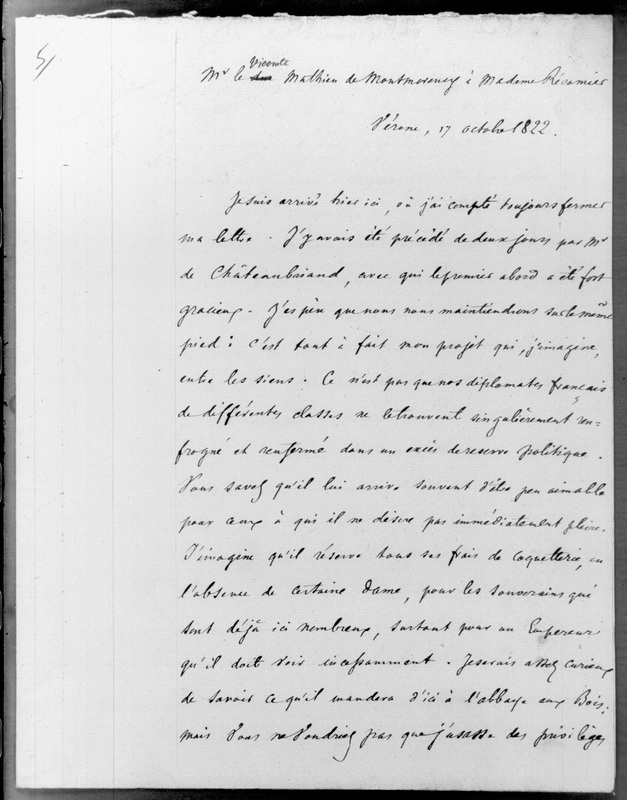 5/
Vicomte
Mr le duc Mathieu de Montmorency à Madame Récamier
Vérone, 17 octobre 1822.
Je suis arrivé hier ici, où j'ai compté toujours fermer
ma lettre. J'y avais été précédé de deux jours par Mr
de Châteaubriand, avec qui le premier abord a été fort
gracieux. J'espère que nous nous maintiendrons sur le même
pied : c'est tout à fait mon projet qui, j'imagine,
entre les siens. Ce n'est pas que nos diplomates français
de différentes classes ne le trouvent singulièrement ren=
frogné et renfermé dans un excès de reserve politique.
Vous savez qu'il lui arrive souvent d'être peu aimable
pour ceux à qui il ne désire pas immédiatement plaire.
J'imagine qu'il réserve tous ses frais de coquetterie, en
l'absence de certaine Dame, pour les souverains qui
sont déjà ici nombreux, surtout pour un Empereur
qu'il doit voir incessamment. Je serais assez curieux
de savoir ce qu'il mandera d'ici à l'abbaye aux Bois,
mais Vous ne Voudriez pas que j'usasse des privilèges